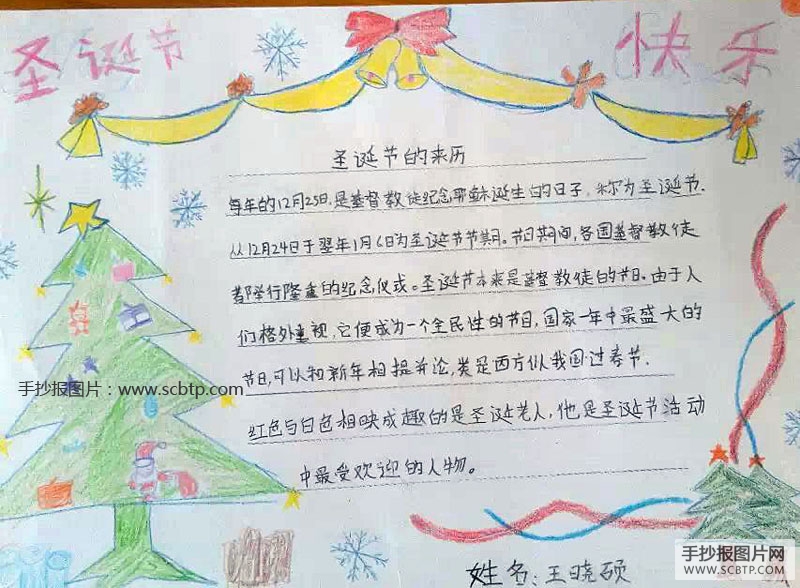 圣诞节 快乐
圣诞节的来历
每年的12月25日,是基督教徒纪念耶稣诞生的日子,称为圣诞节.
从12月24日于翌年1月6日为圣诞节节期。节日期间,各国基督教徒
都举行隆重的纪念仪式。圣诞节本来是基督教徒的节日。由于人
们格外重视,它便成为一个全民性的节日,国家一年中最盛大的
节日,可以和新年相提并论,类是西方似我国过春节.
红色与白色相映成趣的是圣诞老人,他是圣诞节活动
中最受欢迎的人物。
手抄报图片:www.scbtp.com
姓名:王晓硕
手抄报图片网
WWW.SCBTP.COM